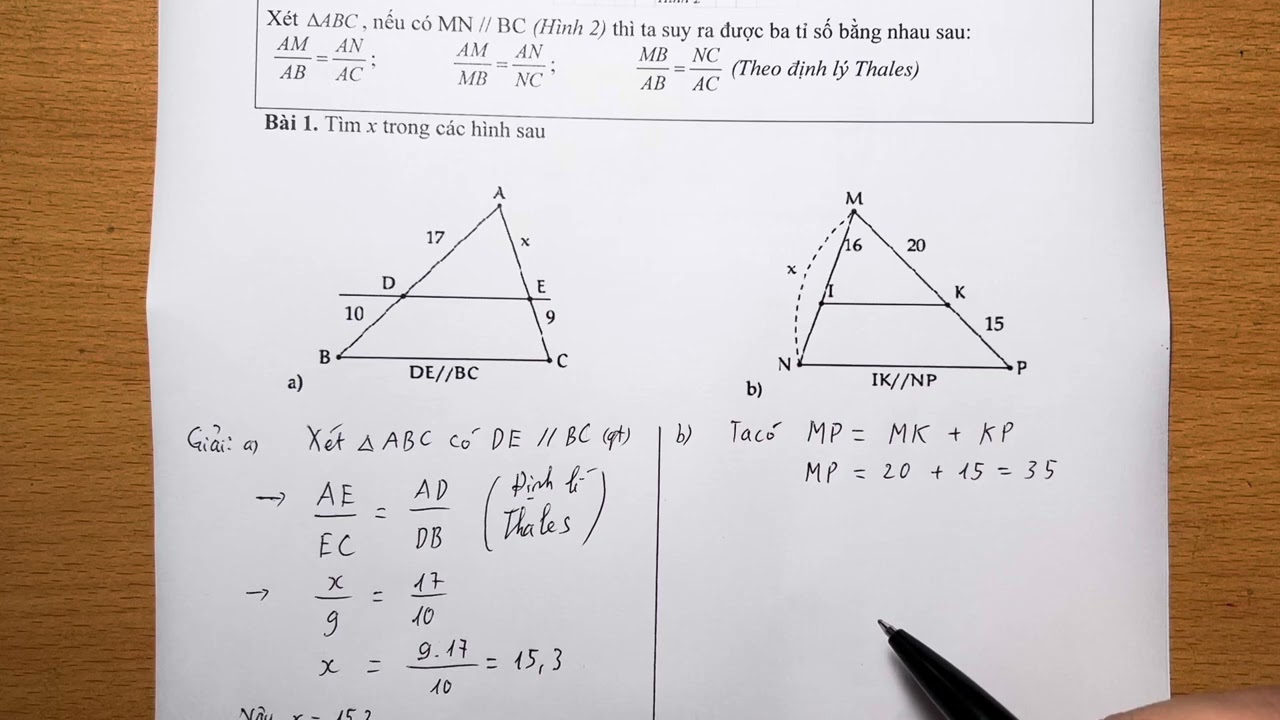 Xét ΔABC, nếu có MN // BC (Hình 2) thì ta suy ra được ba tỉ số bằng nhau sau:
AM/AB = AN/AC; AM/MB = AN/NC; MB/AB = NC/AC (Theo định lý Thales)
Bài 1. Tìm x trong các hình sau
A
17
x
D
E
10
9
B
C
DE//BC
a)
M
16
20
x
I
K
15
N
P
IK//NP
b)
Giải: a) Xét Δ ABC có DE // BC (gt)
→ AE/EC = AD/DB (Định lí Thales)
→ x/9 = 17/10
x = 9.17/10 = 15,3
b) Ta có MP = MK + KP
MP = 20 + 15 = 35